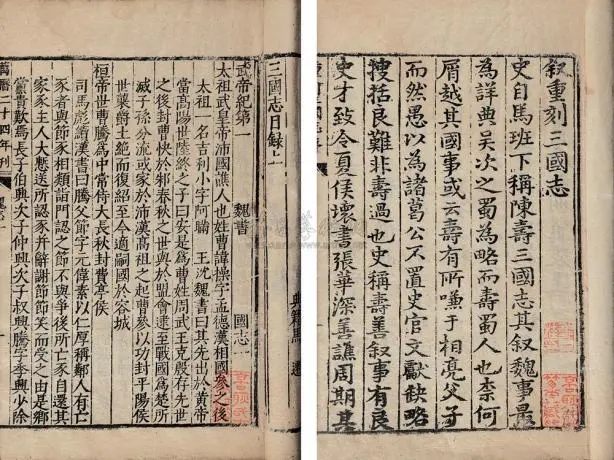 叙重刻三國志
史自馬班下稱陳壽三國志其叙魏事最
為詳典吳次之蜀為略而壽蜀人也柰何
屑越其國事或云壽有所嗛于相亮父子
而然愚以為諸葛公不置史官文獻缺略
搜括良難非壽過也史稱壽善叙事有良
史才致令夏侯壞書張華深善譙周期其
三國志目録上
武帝紀第一 魏書 國志一
太祖武皇帝沛國譙人也姓曹諱操字孟德漢相國參之後
太祖一名吉利小字阿瞞 王沈魏書曰其先出於黃帝
當高陽世陸終之子曰安是為曹姓周武王克殷存先世
之後封曹俠於邾春秋之世與於盟會逮至戰國為楚所
滅子孫分流或家於沛漢高祖之起曹參以功封平陽侯
世襲爵土絕而復紹至今適嗣國於容城
桓帝世曹騰為中常侍大長秋封費亭侯
司馬彪續漢書曰騰父節字元偉素以仁厚稱鄰人有亡
豕者與節豕相類詣門認之節不與爭後所亡豕自還其
家豕主人大慙送所認豕并辭謝節節笑而受之由是鄉
黨貴歎焉長子伯興次子仲興次子叔興騰字季興少除
萬曆二十四年刊